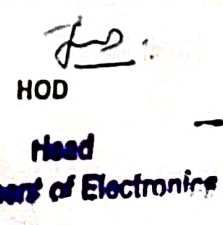 HOD
Head
of Electronics